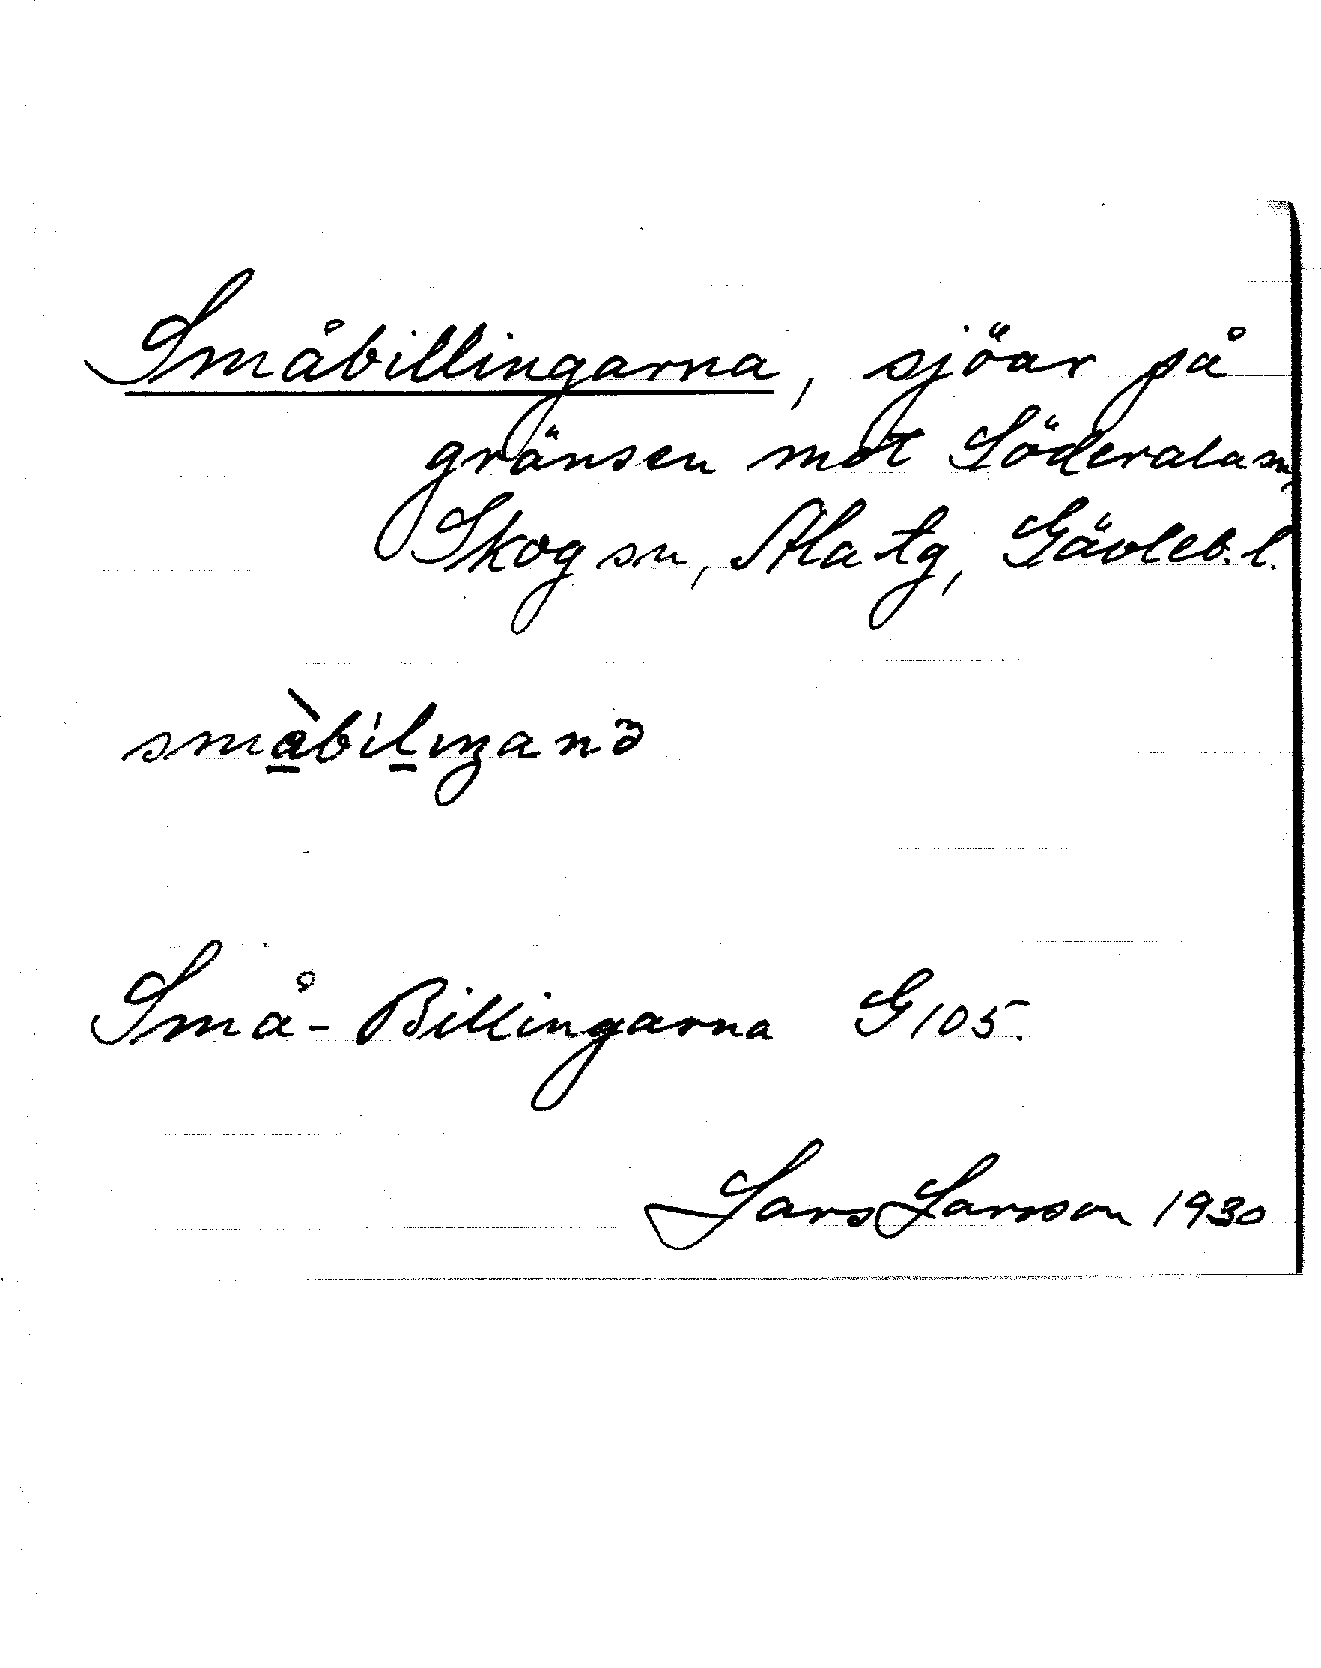 Småbillingarna, sjöar på
gränsen mot Söderala sn,
Skog sn, Ala tg, Gävleb. l.
småbilıŋanə
Små-Billingarna G105.
Lars Larsson 1930